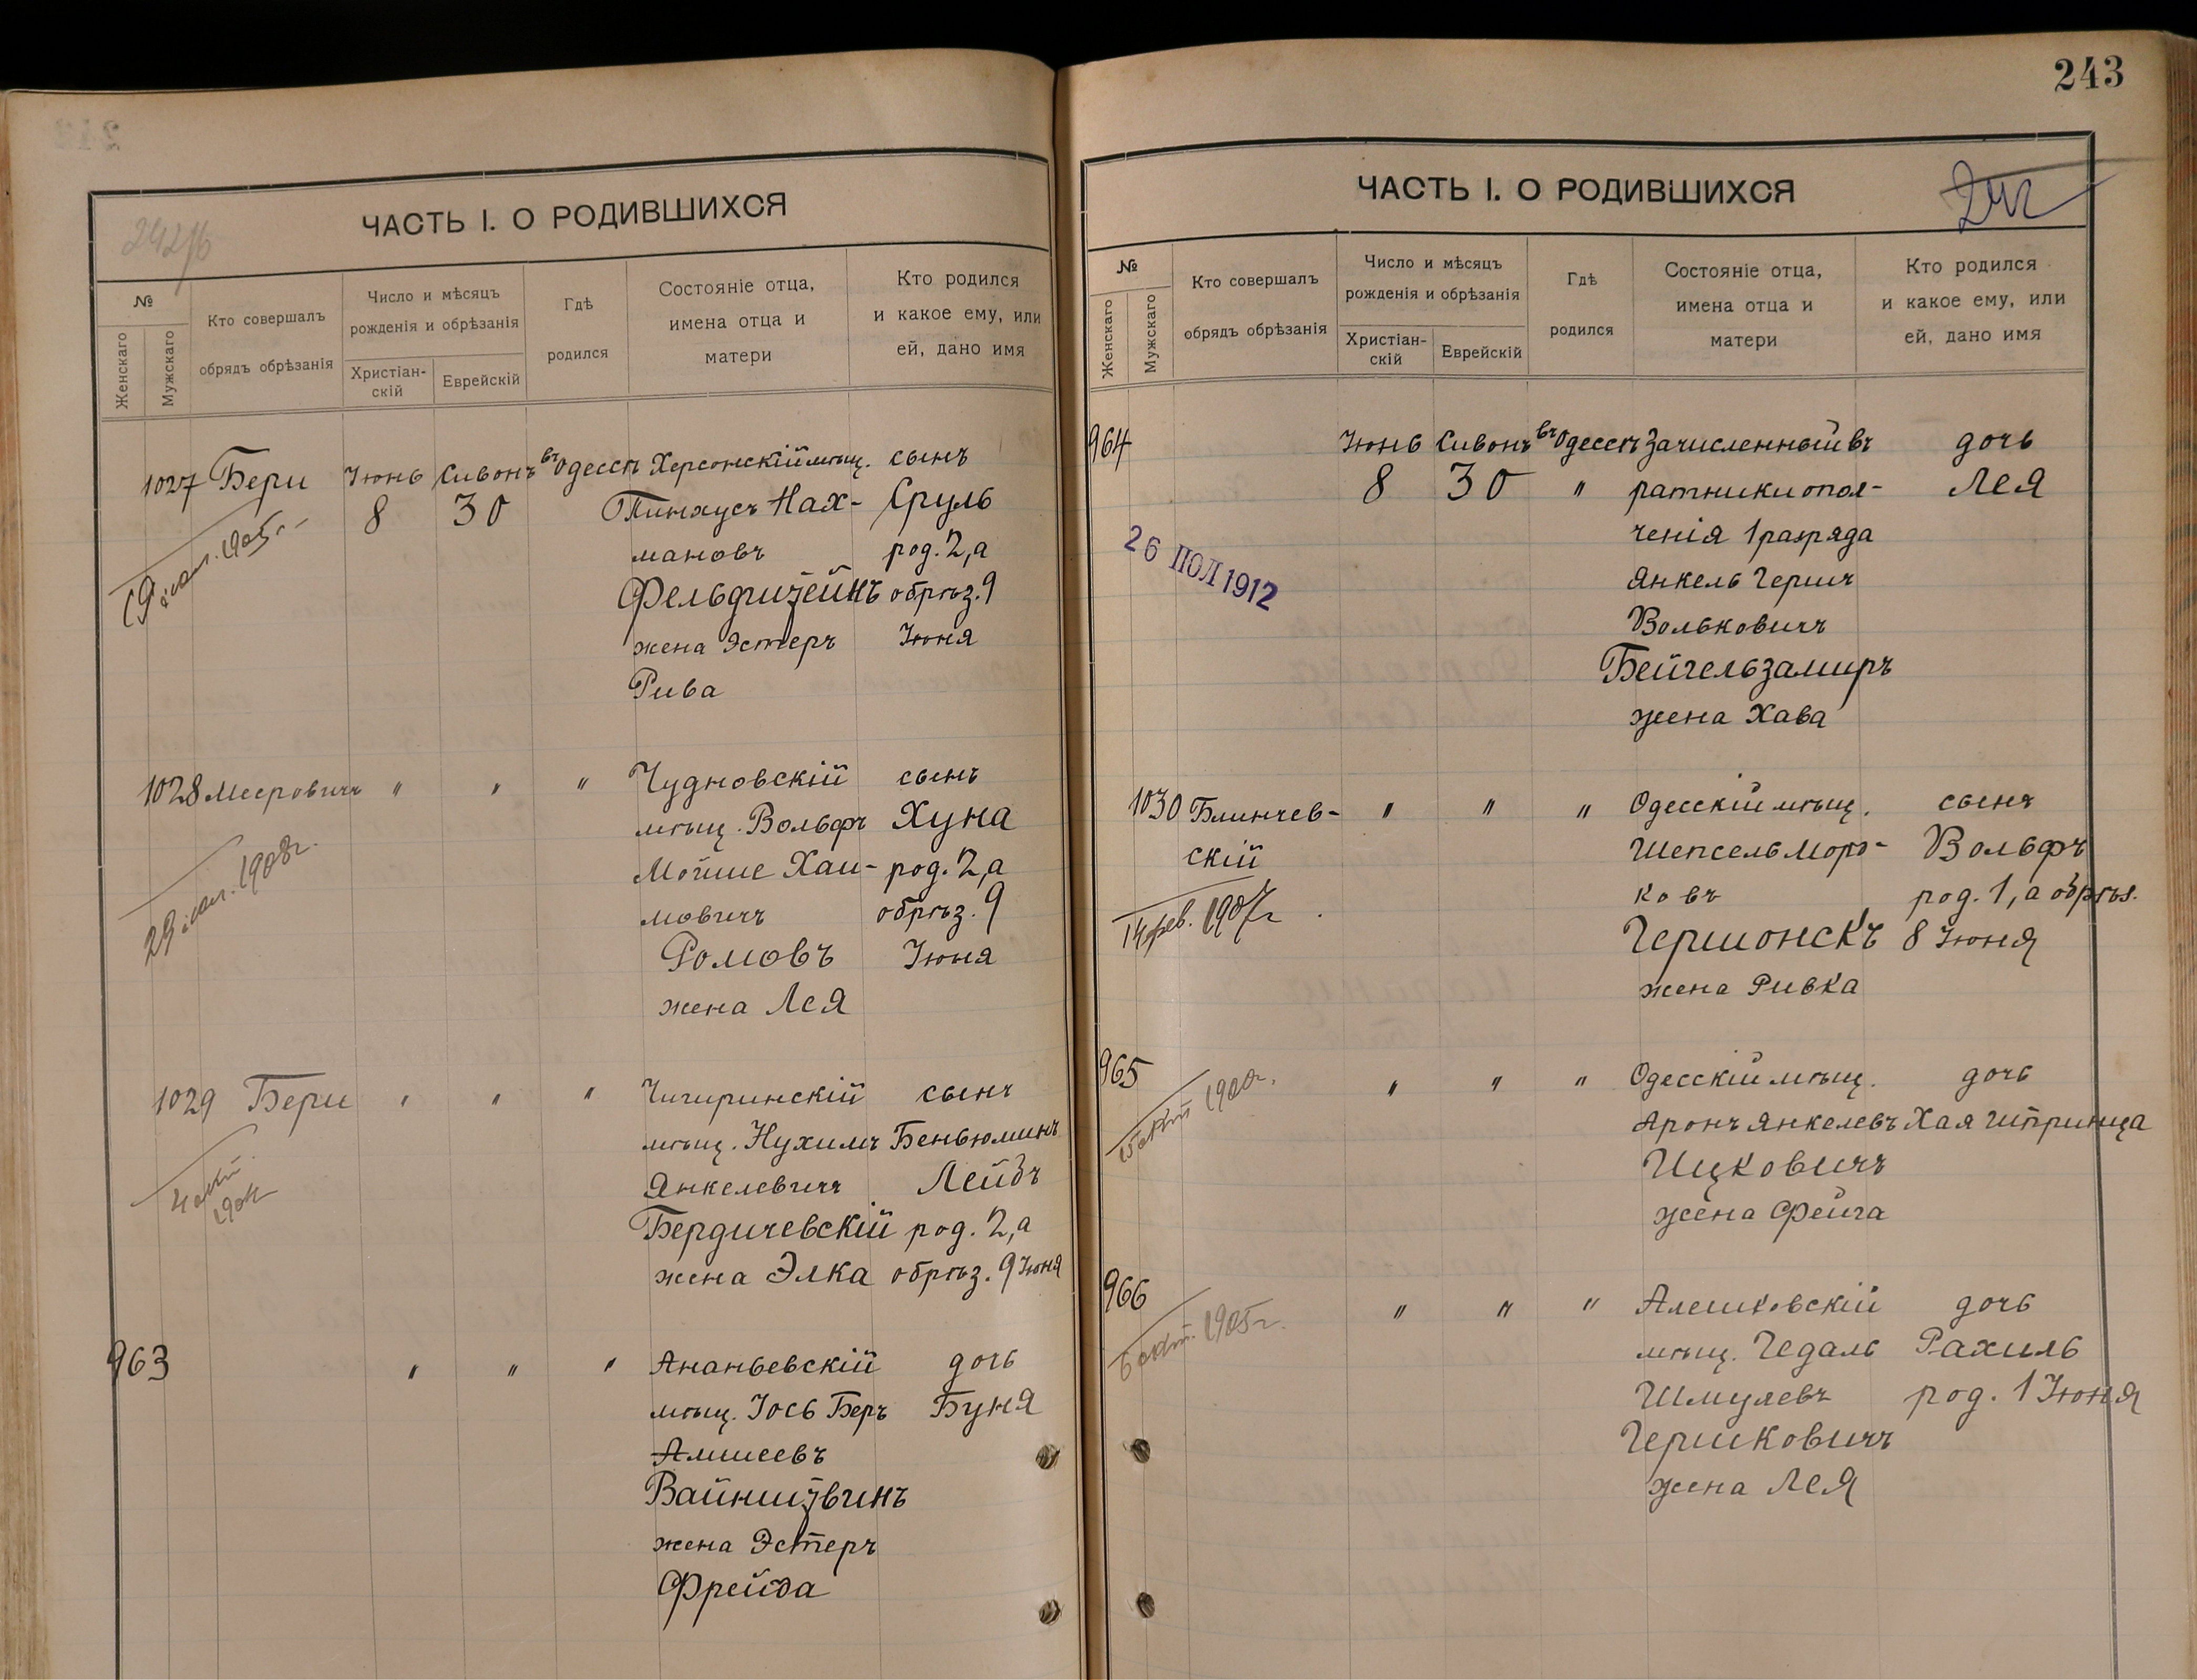 243
ЧАСТЬ I. О РОДИВШИХСЯ
№
Женскаго
Мужскаго
Кто совершалъ
обрядъ обрѣзанія
Число и мѣсяцъ
рожденія и обрѣзанія
Христіан-
скій
Еврейскій
Гдѣ
родился
Состояніе отца,
имена отца и
матери
Кто родился
и какое ему, или
ей, дано имя
1027 Бери Іюнь Сивонъ въ Одессѣ Херсонскій мѣщ. сынъ
8 30 Пинхусъ Нах- Сруль
мановъ род. 2, а
Фельдштейнъ обрѣз. 9
жена Эстеръ Іюня
Рива
1028 Мееровичъ " " " Чудновскій сынъ
мѣщ. Вольфъ Хуна
Мойше Хаи- род. 2, а
мовичъ обрѣз. 9
Ромовъ Іюня
жена Лея
1029 Бери " " " Чигиринскій сынъ
мѣщ. Нухимъ Беньюминъ
Янкелевичъ Лейбъ
Бердичевскій род. 2, а
жена Элка обрѣз. 9 Іюня
963 " " " Ананьевскій дочь
мѣщ. Іось Беръ Буня
Амшеевъ
Вайнштейнъ
жена Эстеръ
Фрейда
ЧАСТЬ I. О РОДИВШИХСЯ
242
№
Женскаго
Мужскаго
Кто совершалъ
обрядъ обрѣзанія
Число и мѣсяцъ
рожденія и обрѣзанія
Христіан-
скій
Еврейскій
Гдѣ
родился
Состояніе отца,
имена отца и
матери
Кто родился
и какое ему, или
ей, дано имя
964 Іюнь Сивонъ въ Одессѣ Зачисленный въ дочь
8 30 " ратники опол- Лея
ченія 1 разряда
26 ІЮЛ 1912
Янкель Герш
Вольковичъ
Бейгельзамиръ
жена Хава
1030 Блинчев- " " " Одесскій мѣщ. сынъ
скій Шепсель Мор­о- Вольфъ
ковъ род. 1, а обрѣз.
14 фев. 1907 г. Гершонскъ 8 Іюня
жена Ривка
965 " " " Одесскій мѣщ. дочь
Аронъ Янкелевъ Хая Штринца
Ицковичъ
жена Фейга
966 " " " Алешковскій дочь
мѣщ. Гедаль Рахиль
Шмулевъ род. 1 Іюня
Гершковичъ
жена Лея